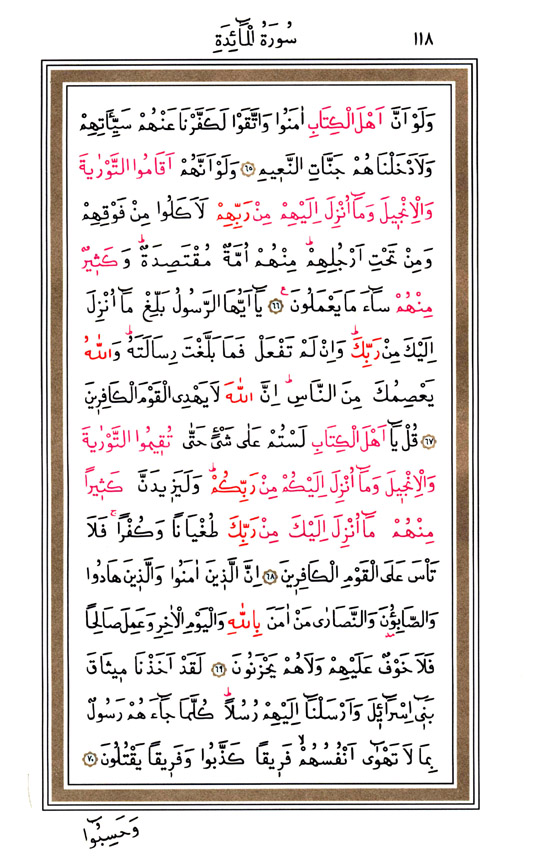 ١١٨ سُورَةُ الْمَٓائِدَةِ
وَلَوْ اَنَّ اَهْلَ الْكِتَابِ اٰمَنُوا وَاتَّقَوْا لَكَفَّرْنَا عَنْهُمْ سَيِّـَٔاتِهِمْ
وَلَاَدْخَلْنَاهُمْ جَنَّاتِ النَّع۪يمِ ﴿٦٥﴾ وَلَوْ اَنَّهُمْ اَقَامُوا التَّوْرٰيةَ
وَالْاِنْج۪يلَ وَمَٓا اُنْزِلَ اِلَيْهِمْ مِنْ رَبِّهِمْ لَاَكَلُوا مِنْ فَوْقِهِمْ
وَمِنْ تَحْتِ اَرْجُلِهِمْۜ مِنْهُمْ اُمَّةٌ مُقْتَصِدَةٌۜ وَكَث۪يرٌ
مِنْهُمْ سَٓاءَ مَا يَعْمَلُونَ۟ ﴿٦٦﴾ يَٓا اَيُّهَا الرَّسُولُ بَلِّغْ مَٓا اُنْزِلَ
اِلَيْكَ مِنْ رَبِّكَۜ وَاِنْ لَمْ تَفْعَلْ فَمَا بَلَّغْتَ رِسَالَتَهُۜ وَاللّٰهُ
يَعْصِمُكَ مِنَ النَّاسِۜ اِنَّ اللّٰهَ لَا يَهْدِي الْقَوْمَ الْكَافِر۪ينَ
﴿٦٧﴾ قُلْ يَٓا اَهْلَ الْكِتَابِ لَسْتُمْ عَلٰى شَيْءٍ حَتّٰى تُق۪يمُوا التَّوْرٰيةَ
وَالْاِنْج۪يلَ وَمَٓا اُنْزِلَ اِلَيْكُمْ مِنْ رَبِّكُمْۜ وَلَيَز۪يدَنَّ كَث۪يراً
مِنْهُمْ مَٓا اُنْزِلَ اِلَيْكَ مِنْ رَبِّكَ طُغْيَاناً وَكُفْراًۚ فَلَا
تَأْسَ عَلَى الْقَوْمِ الْكَافِر۪ينَ ﴿٦٨﴾ اِنَّ الَّذ۪ينَ اٰمَنُوا وَالَّذ۪ينَ هَادُوا
وَالصَّابِؤُ۫نَ وَالنَّصَارٰى مَنْ اٰمَنَ بِاللّٰهِ وَالْيَوْمِ الْاٰخِرِ وَعَمِلَ صَالِحاً
فَلَا خَوْفٌ عَلَيْهِمْ وَلَا هُمْ يَحْزَنُونَ ﴿٦٩﴾ لَقَدْ اَخَذْنَا م۪يثَاقَ
بَن۪ٓي اِسْرَٓائ۪لَ وَاَرْسَلْنَٓا اِلَيْهِمْ رُسُلاًۜ كُلَّمَا جَٓاءَهُمْ رَسُولٌ
بِمَا لَا تَهْوٰٓى اَنْفُسُهُمْۙ فَر۪يقاً كَذَّبُوا وَفَر۪يقاً يَقْتُلُونَ ﴿٧٠﴾
وَحَسِبُٓوا